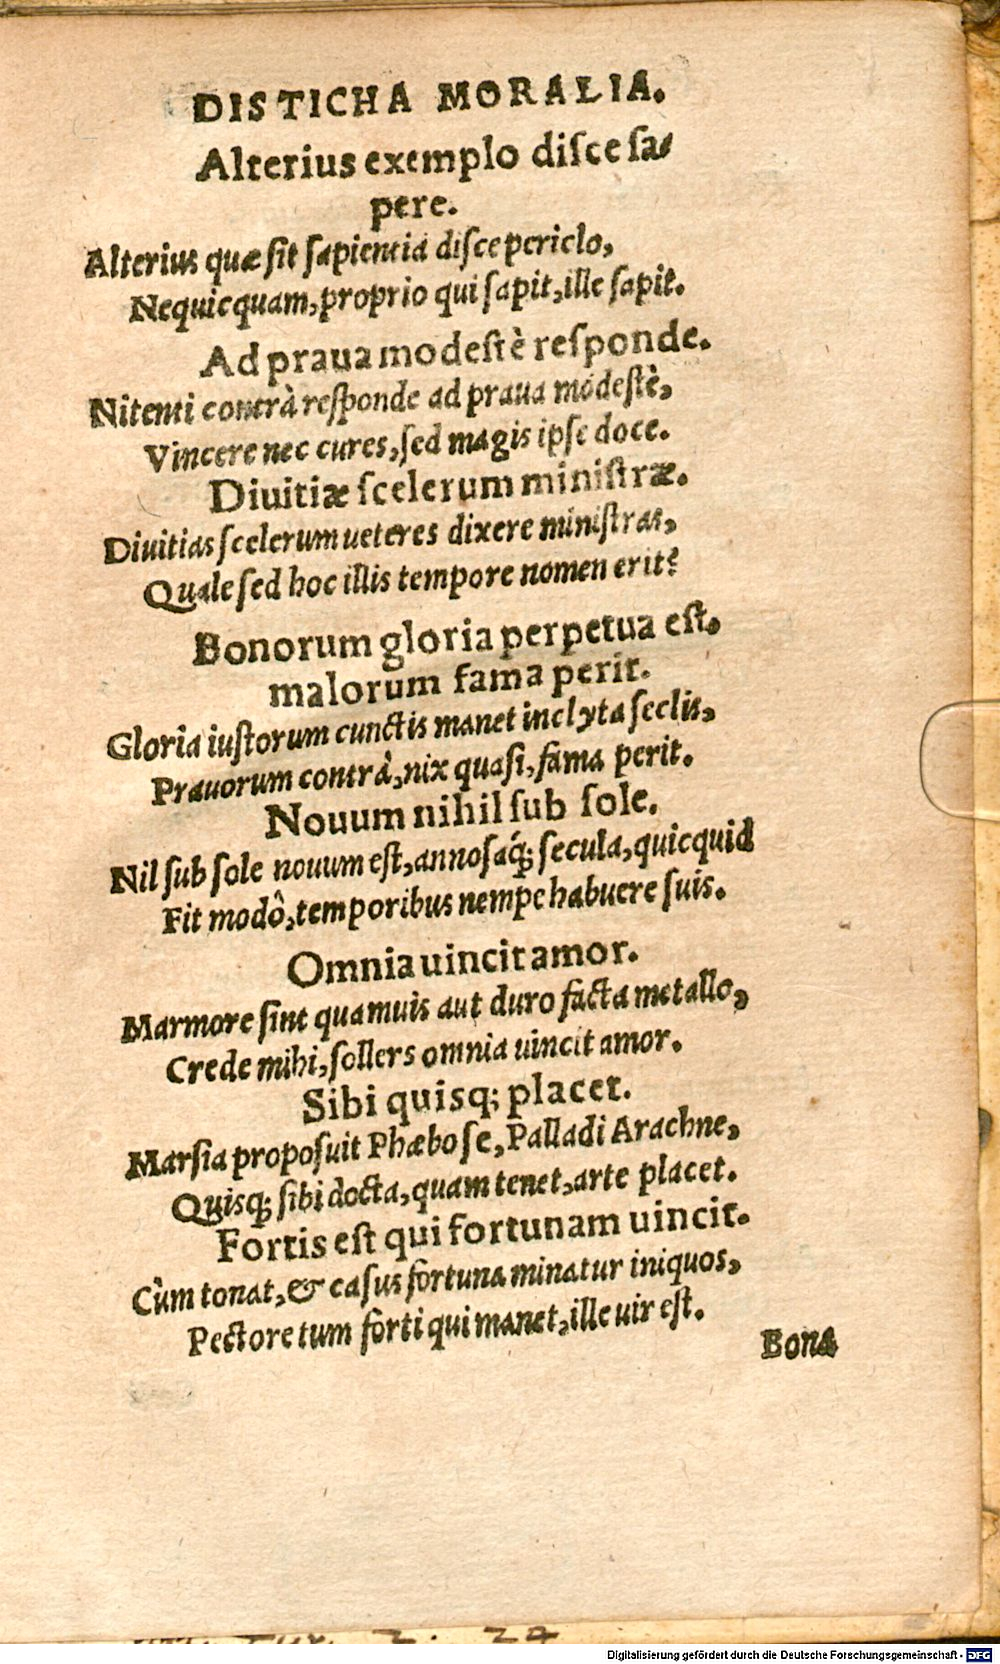 DISTICHA MORALIA.
Alterius exemplo diſce ſa⸗
pere.
Alterius quæ ſit ſapientia diſce periclo,
Nequicquam, proprio qui ſapit, ille ſapit.
Ad praua modeſtè reſponde.
Nitenti contrà reſponde ad praua modeſtè,
Vincere nec cures, ſed magis ipſe doce.
Diuitiæ ſcelerum miniſtræ.
Diuitias ſcelerum ueteres dixere miniſtras,
Quale ſed hoc illis tempore nomen erit?
Bonorum gloria perpetua eſt,
malorum fama perit.
Gloria iuſtorum cunctis manet inclyta ſeclis,
Prauorum contrà, nix quaſi, fama perit.
Nouum nihil ſub ſole.
Nil ſub ſole nouum eſt, annoſaq́; ſecula, quicquid
Fit modô, temporibus nempe habuere ſuis.
Omnia uincit amor.
Marmore ſint quamuis aut duro facta metallo,
Crede mihi, ſollers omnia uincit amor.
Sibi quisq; placet.
Marſia propoſuit Phæbo ſe, Palladi Arachne,
Quisq; ſibi docta, quam tenet, arte placet.
Fortis eſt qui fortunam uincit.
Cùm tonat, & caſus fortuna minatur iniquos,
Pectore tum forti qui manet, ille uir eſt.
Bona
Digitalisierung gefördert durch die Deutsche Forschungsgemeinschaft - DFG